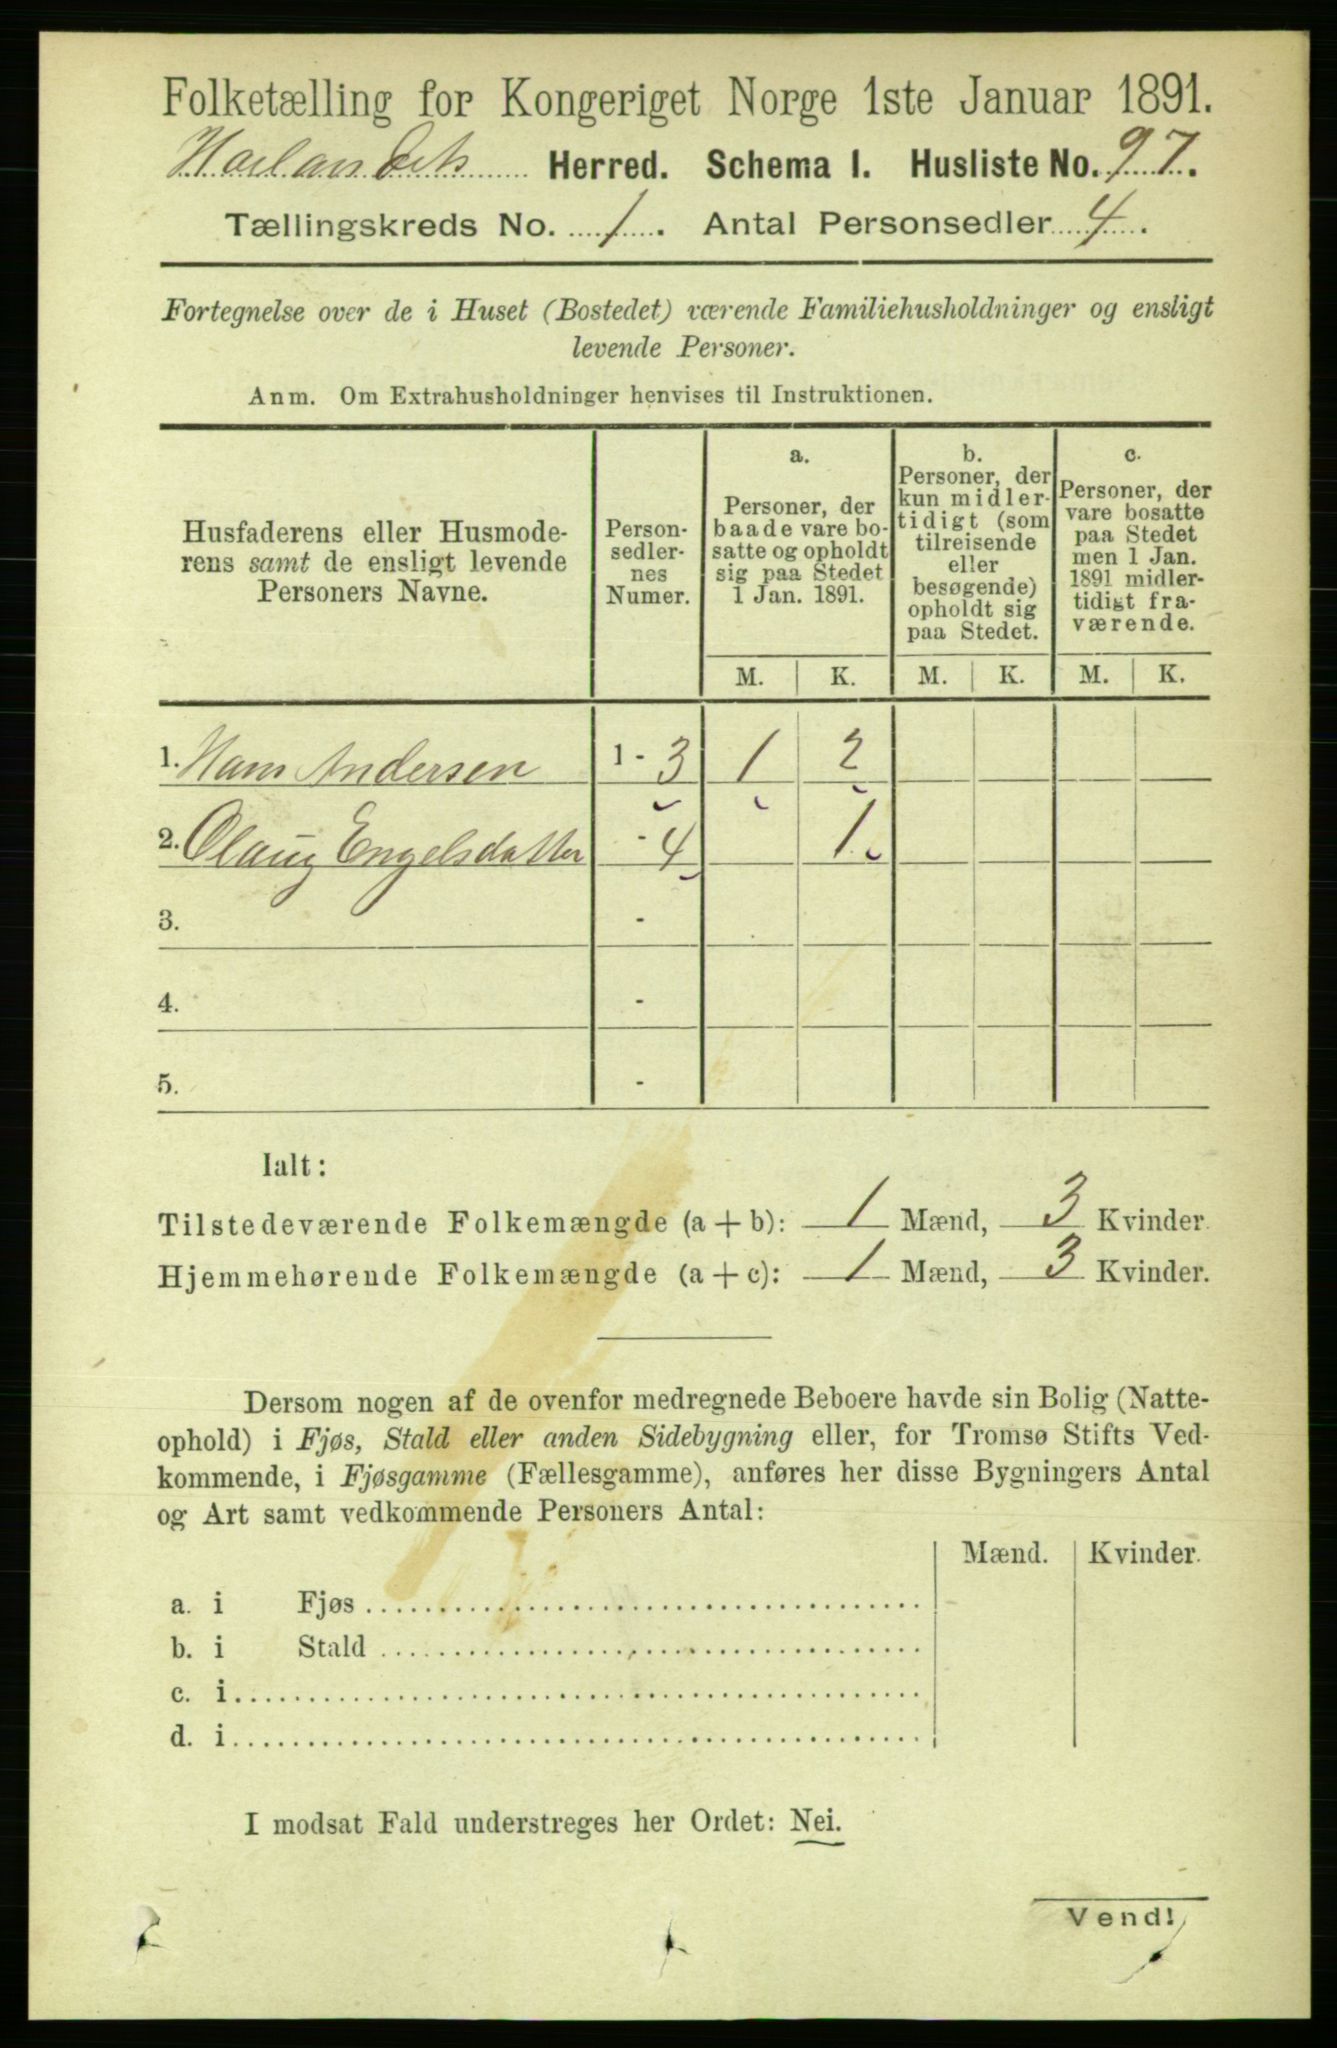 Folketælling for Kongeriget Norge 1ste Januar 1891.
Herred. Schema I. Husliste No. 97.
Tællingskreds No. 1. Antal Personsedler 4.
Fortegnelse over de i Huset (Bostedet) værende Familiehusholdninger og ensligt
levende Personer.
Anm. Om Extrahusholdninger henvises til Instruktionen.
Husfaderens eller Husmode-
rens samt de ensligt levende
Personers Navne.
Person-
sedler-
nes
Numer.
a.
Personer, der
baade vare bo-
satte og opholdt
sig paa Stedet
1 Jan. 1891.
b.
Personer, der
kun midler-
tidigt (som
tilreisende
eller
besøgende)
opholdt sig
paa Stedet.
c.
Personer, der
vare bosatte
paa Stedet
men 1 Jan.
1891 midler-
tidigt fra-
værende.
M. K. M. K. M. K.
1. Hans Andersen 1 - 3 1 2
2. Olaug Engelsdatter - 4 1
3. -
4. -
5. -
Ialt:
Tilstedeværende Folkemængde (a + b): 1 Mænd, 3 Kvinder.
Hjemmehørende Folkemængde (a + c): 1 Mænd, 3 Kvinder.
Dersom nogen af de ovenfor medregnede Beboere havde sin Bolig (Natte-
ophold) i Fjøs, Stald eller anden Sidebygning eller, for Tromsø Stifts Ved-
kommende, i Fjøsgamme (Fællesgamme), anføres her disse Bygningers Antal
og Art samt vedkommende Personers Antal:
Mænd. Kvinder.
a. i Fjøs
b. i Stald
c. i
d. i
I modsat Fald understreges her Ordet: Nei.
Vend!